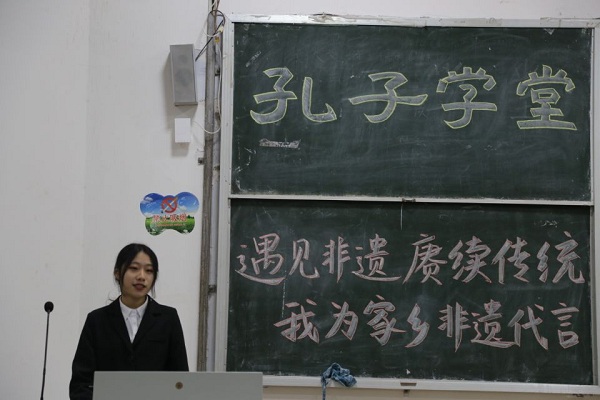 孔子学堂
遇见非遗赓续传统
我为家乡非遗代言